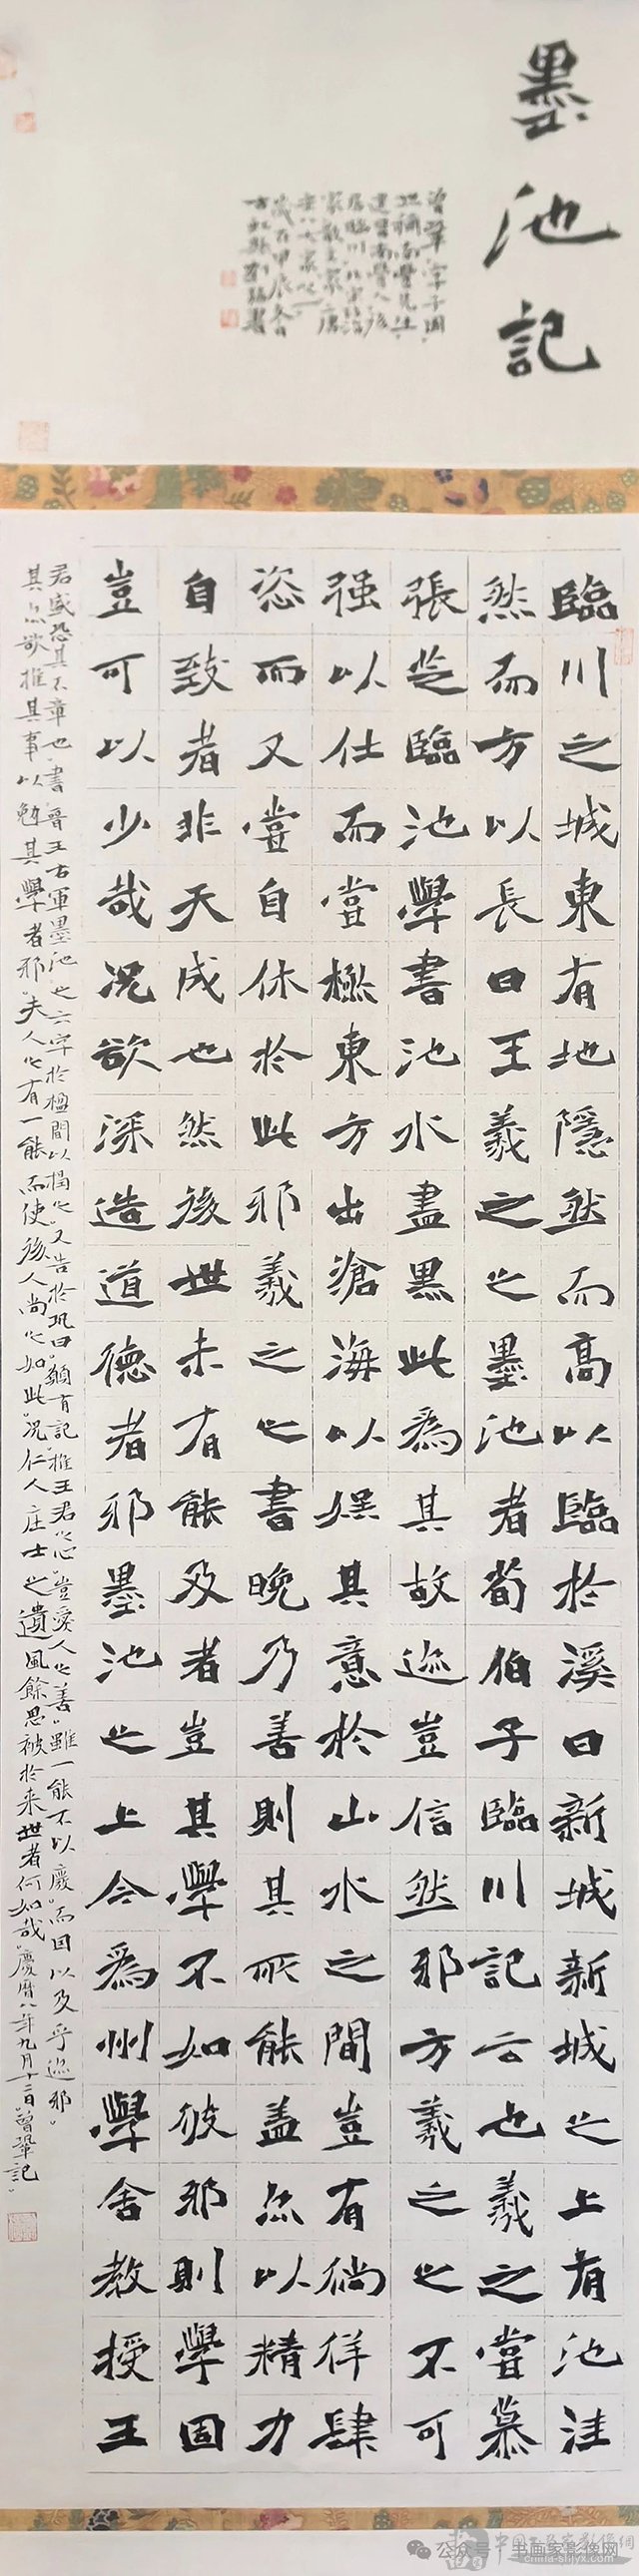 墨池記
曾鞏字子固
世稱南豐先生
建昌南豐人後
居臨川北宋政治
家散文家唐
宋八大家之一
歲在甲辰冬日
古虹縣劉書
臨川之城東有地隱然而高以臨於溪曰新城新城之上有池洼
然而方以長曰王羲之之墨池者荀伯子臨川記云也羲之嘗慕
張芝臨池學書池水盡黑此為其故迹豈信然邪方羲之之不可
强以仕而嘗極東方出滄海以娱其意於山水之間豈有徜徉肆
恣而又嘗自休於此邪羲之之書晚乃善則其所能蓋亦以精力
自致者非天成也然後世未有能及者豈其學不如彼邪則學固
豈可以少哉况欲深造道德者邪墨池之上今為州學舍教授王
君盛恐其不章也書晋王右軍墨池之六字於楹間以揭之又告於鞏曰願有記推王君之心豈愛人之善雖一能不以廢而因以及乎迹邪
其亦欲推其事以勉其學者邪夫人之有一能而使後人尚之如此况仁人莊士之遺風餘思被於来世者何如哉慶曆八年九月十二日曾鞏記
公众号·书画家影像网
中国书画家影像网
china-shjyx.com